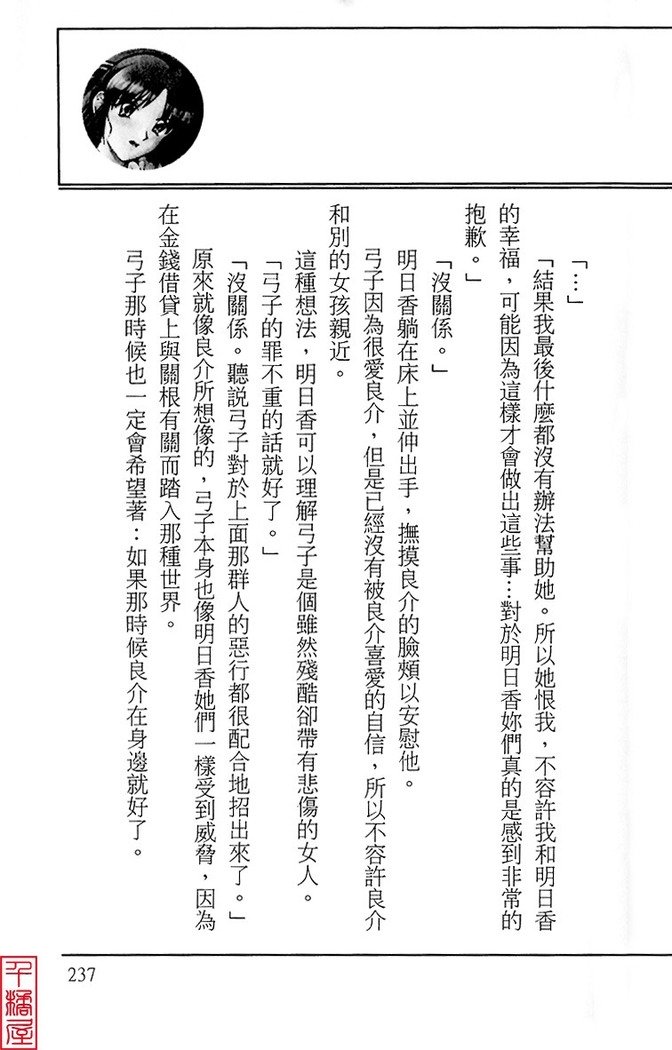 「…」
「結果我最後什麼都沒有辦法幫助她。所以她恨我，不容許我和明日香
的幸福，可能因為這樣才會做出這些事…對於明日香妳們真的是感到非常的
抱歉。」
「沒關係。」
明日香躺在床上並伸出手，撫摸良介的臉頰以安慰他。
弓子因為很愛良介，但是已經沒有被良介喜愛的自信，所以不容許良介
和別的女孩親近。
這種想法，明日香可以理解弓子是個雖然殘酷卻帶有悲傷的女人。
「弓子的罪不重的話就好了。」
「沒關係。聽說弓子對於上面那群人的惡行都很配合地招出來了。」
原來就像良介所想像的，弓子本身也像明日香她們一樣受到威脅，因為
在金錢借貸上與關根有關而踏入那種世界。
弓子那時候也一定會希望著：如果那時候良介在身邊就好了。
237
千橘屋